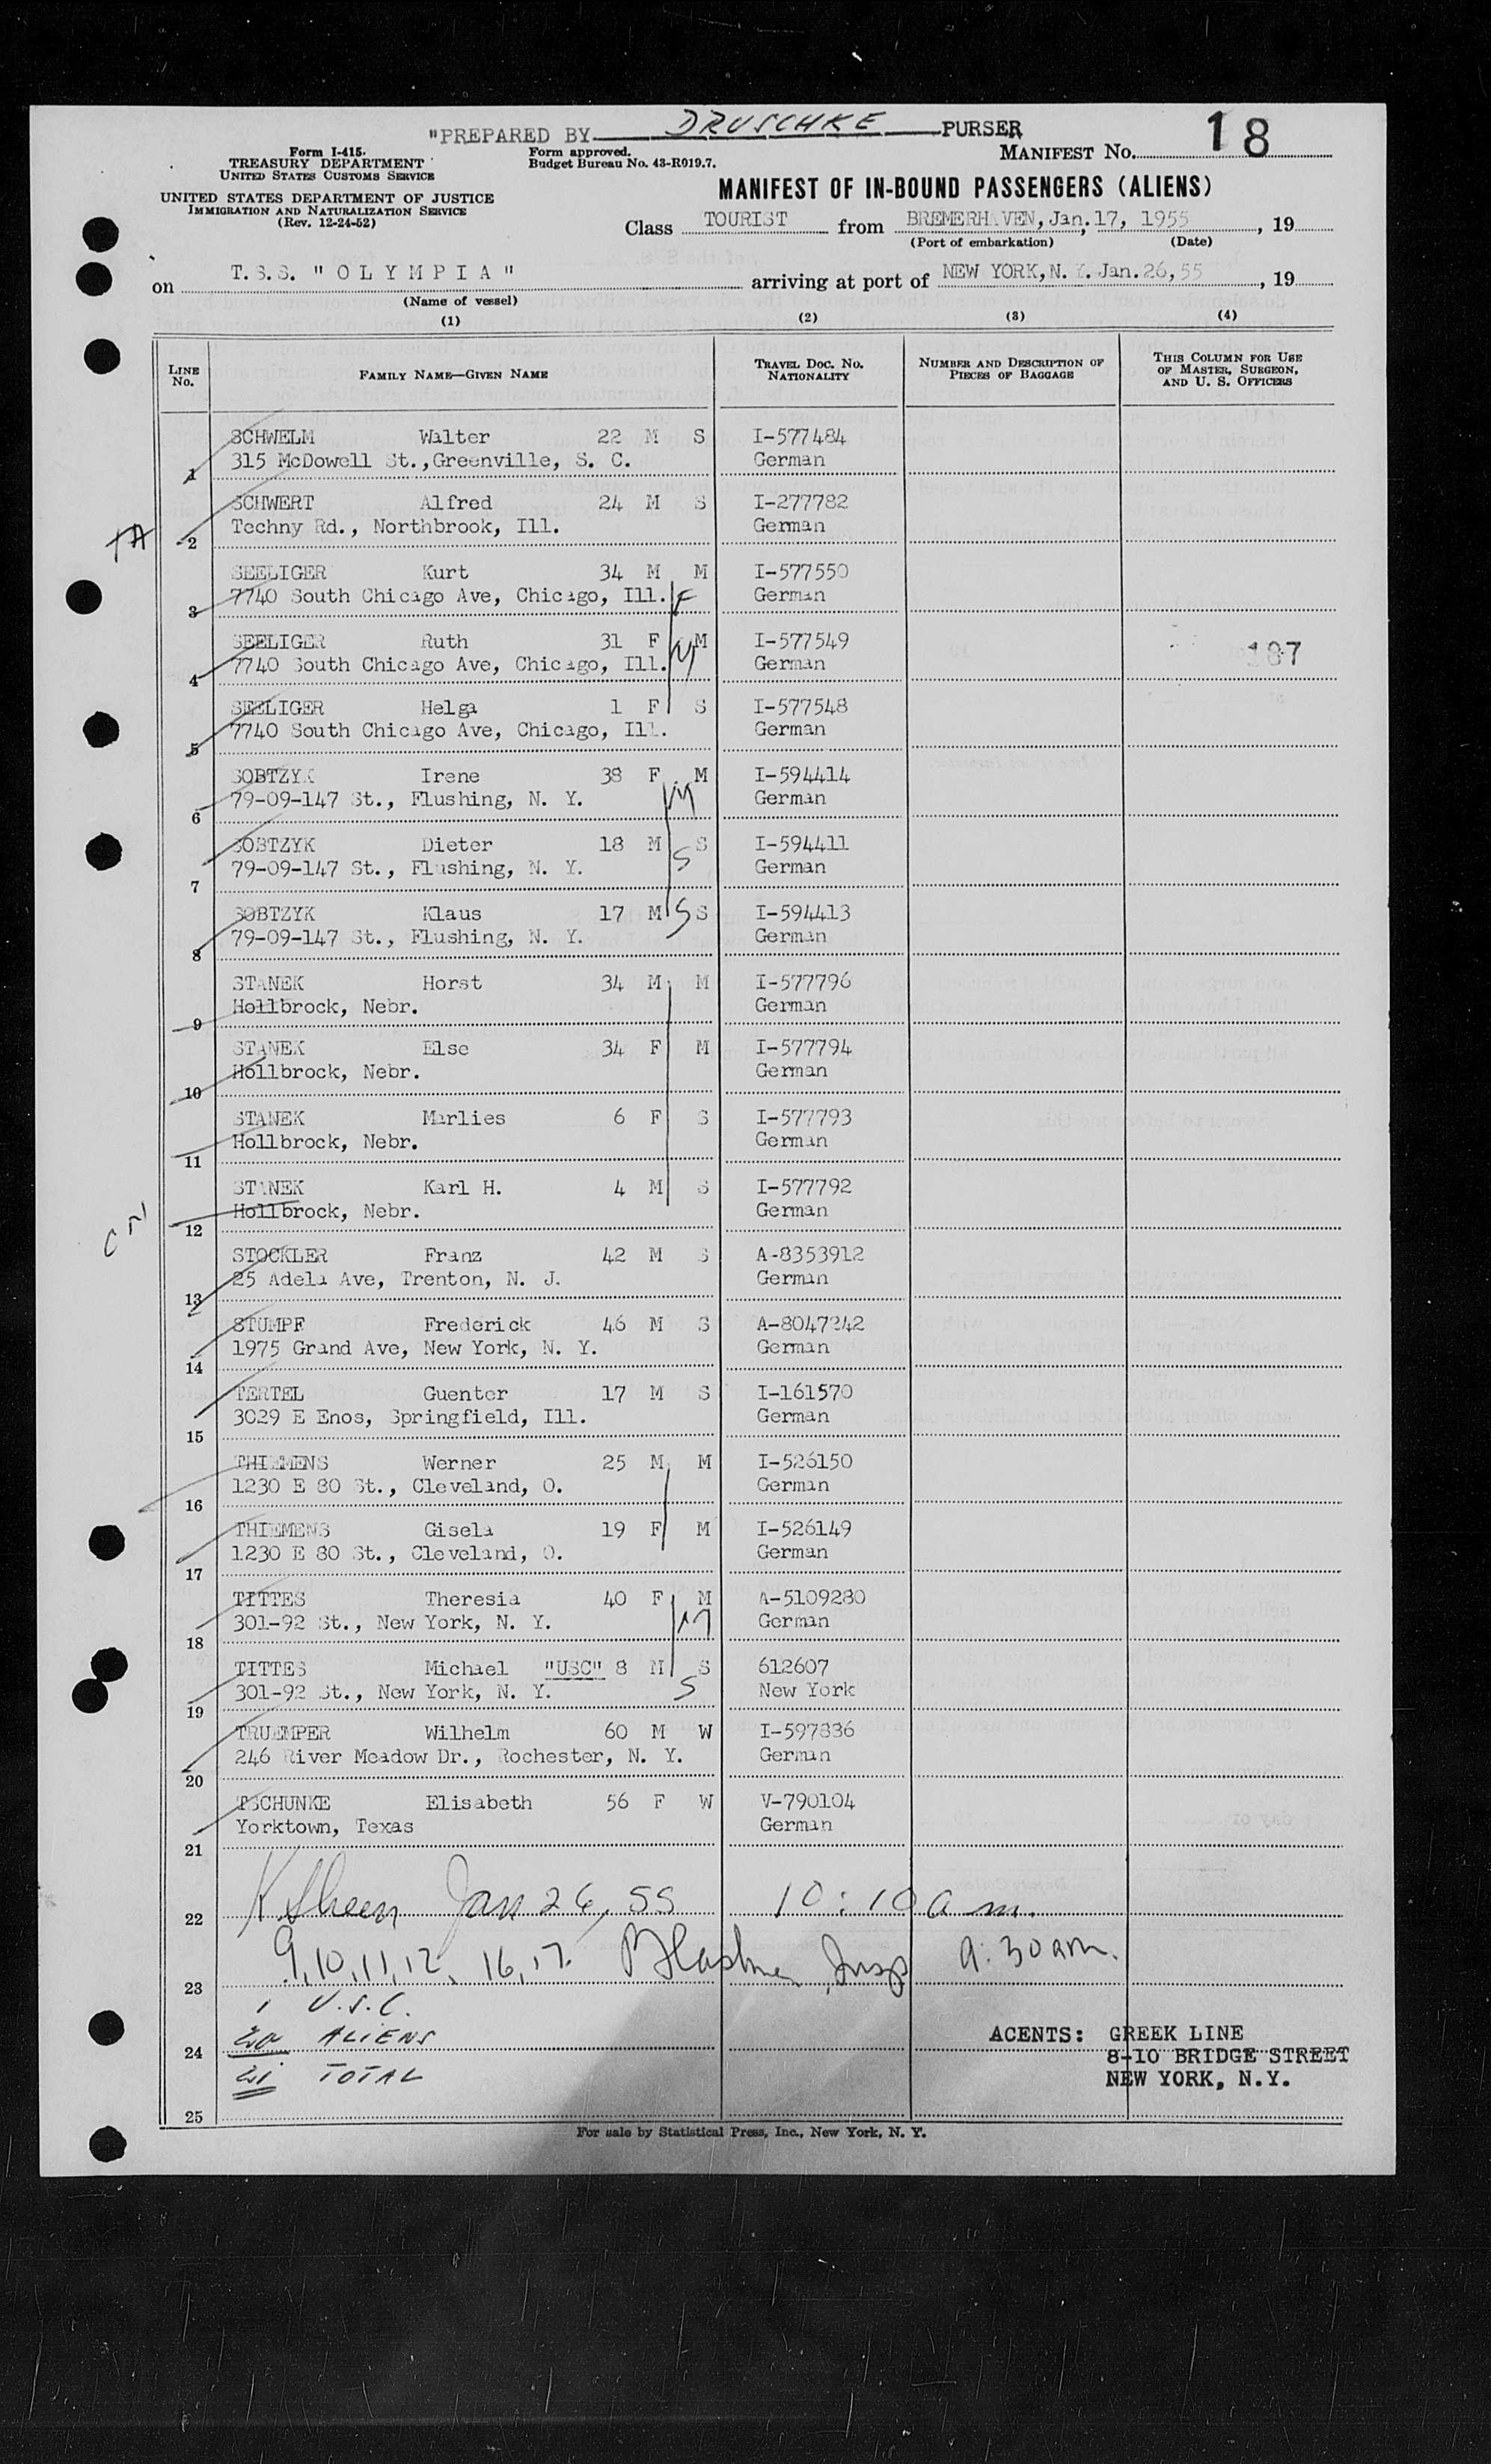 "PREPARED BY DRUSCHKE PURSER
Form I-415.
TREASURY DEPARTMENT
UNITED STATES CUSTOMS SERVICE
Form approved.
Budget Bureau No. 43-R019.7.
MANIFEST No. 18
UNITED STATES DEPARTMENT OF JUSTICE
IMMIGRATION AND NATURALIZATION SERVICE
(Rev. 12-24-52)
MANIFEST OF IN-BOUND PASSENGERS (ALIENS)
Class TOURIST from BREMERHAVEN, Jan. 17, 1955, 19
(Port of embarkation) (Date)
on T.S.S. "OLYMPIA" arriving at port of NEW YORK, N. Y. Jan. 26, 55, 19
(Name of vessel)
(1) (2) (3) (4)
LINE No. FAMILY NAME—GIVEN NAME TRAVEL DOC. No. NATIONALITY NUMBER AND DESCRIPTION OF PIECES OF BAGGAGE THIS COLUMN FOR USE OF MASTER, SURGEON, AND U. S. OFFICERS
SCHWELM Walter 22 M S I-577484
1 315 McDowell St., Greenville, S. C. German
SCHWERT Alfred 24 M S I-277782
2 Techny Rd., Northbrook, Ill. German
SEELIGER Kurt 34 M M I-577550
3 7740 South Chicago Ave, Chicago, Ill. German
SEELIGER Ruth 31 F M I-577549
4 7740 South Chicago Ave, Chicago, Ill. German 187
SEELIGER Helga 1 F S I-577548
5 7740 South Chicago Ave, Chicago, Ill. German
SOBTZYK Irene 38 F M I-594414
6 79-09-147 St., Flushing, N. Y. M German
SOBTZYK Dieter 18 M S I-594411
7 79-09-147 St., Flushing, N. Y. S German
SOBTZYK Klaus 17 M S S I-594413
8 79-09-147 St., Flushing, N. Y. German
STANEK Horst 34 M M I-577796
9 Hollbrock, Nebr. German
STANEK Else 34 F M I-577794
10 Hollbrock, Nebr. German
STANEK Marlies 6 F S I-577793
11 Hollbrock, Nebr. German
STANEK Karl H. 4 M S I-577792
12 Hollbrock, Nebr. German
STOCKLER Franz 42 M S A-8353912
13 25 Adela Ave, Trenton, N. J. German
STUMPF Frederick 46 M S A-8047242
14 1975 Grand Ave, New York, N. Y. German
TERTEL Guenter 17 M S I-161570
15 3029 E Enos, Springfield, Ill. German
THIEMENS Werner 25 M M I-526150
16 1230 E 80 St., Cleveland, O. German
THIEMENS Gisela 19 F M I-526149
17 1230 E 80 St., Cleveland, O. German
TITTES Theresia 40 F M A-5109280
18 301-92 St., New York, N. Y. M German
TITTES Michael "USC" 8 M S 612607
19 301-92 St., New York, N. Y. S New York
TRUEMPER Wilhelm 60 M W I-597836
20 246 River Meadow Dr., Rochester, N. Y. German
TSCHUNKE Elisabeth 56 F W V-790104
21 Yorktown, Texas German
22 Jan 26, 55 10:10 a m.
23 9, 10, 11, 12, 16, 17. Insp 9:30 am.
1 U.S.C.
24 20 ALIENS
21 TOTAL
25
ACENTS: GREEK LINE
8-10 BRIDGE STREET
NEW YORK, N.Y.
For sale by Statistical Press, Inc., New York, N. Y.